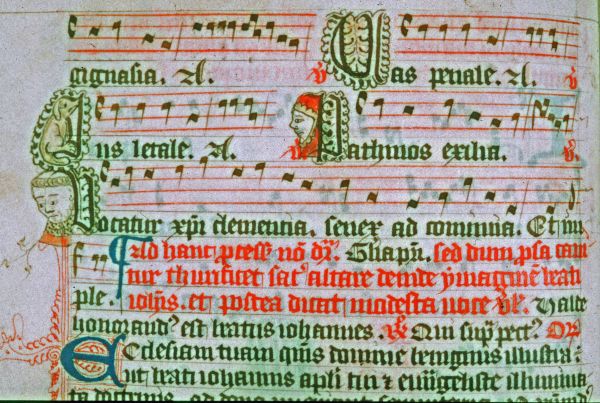 gignasia. A. V Vas penale. A. V
Ius letale. A. V Pathmos exilia. V
Vocatur xpi clementia. senex ad conuiuia. Et im
hanc pcess nō dr. sed dum psa
tur thurificet sac altare deinde ymaginē beati
ple. iohis. et postea dicat modesta uoce Valde
honorand' est beatus iohannes. V Qui sup pect'. Or
Ecclesiam tuam quis domine benignus illustra
ut beati iohannis apli tui et illumina